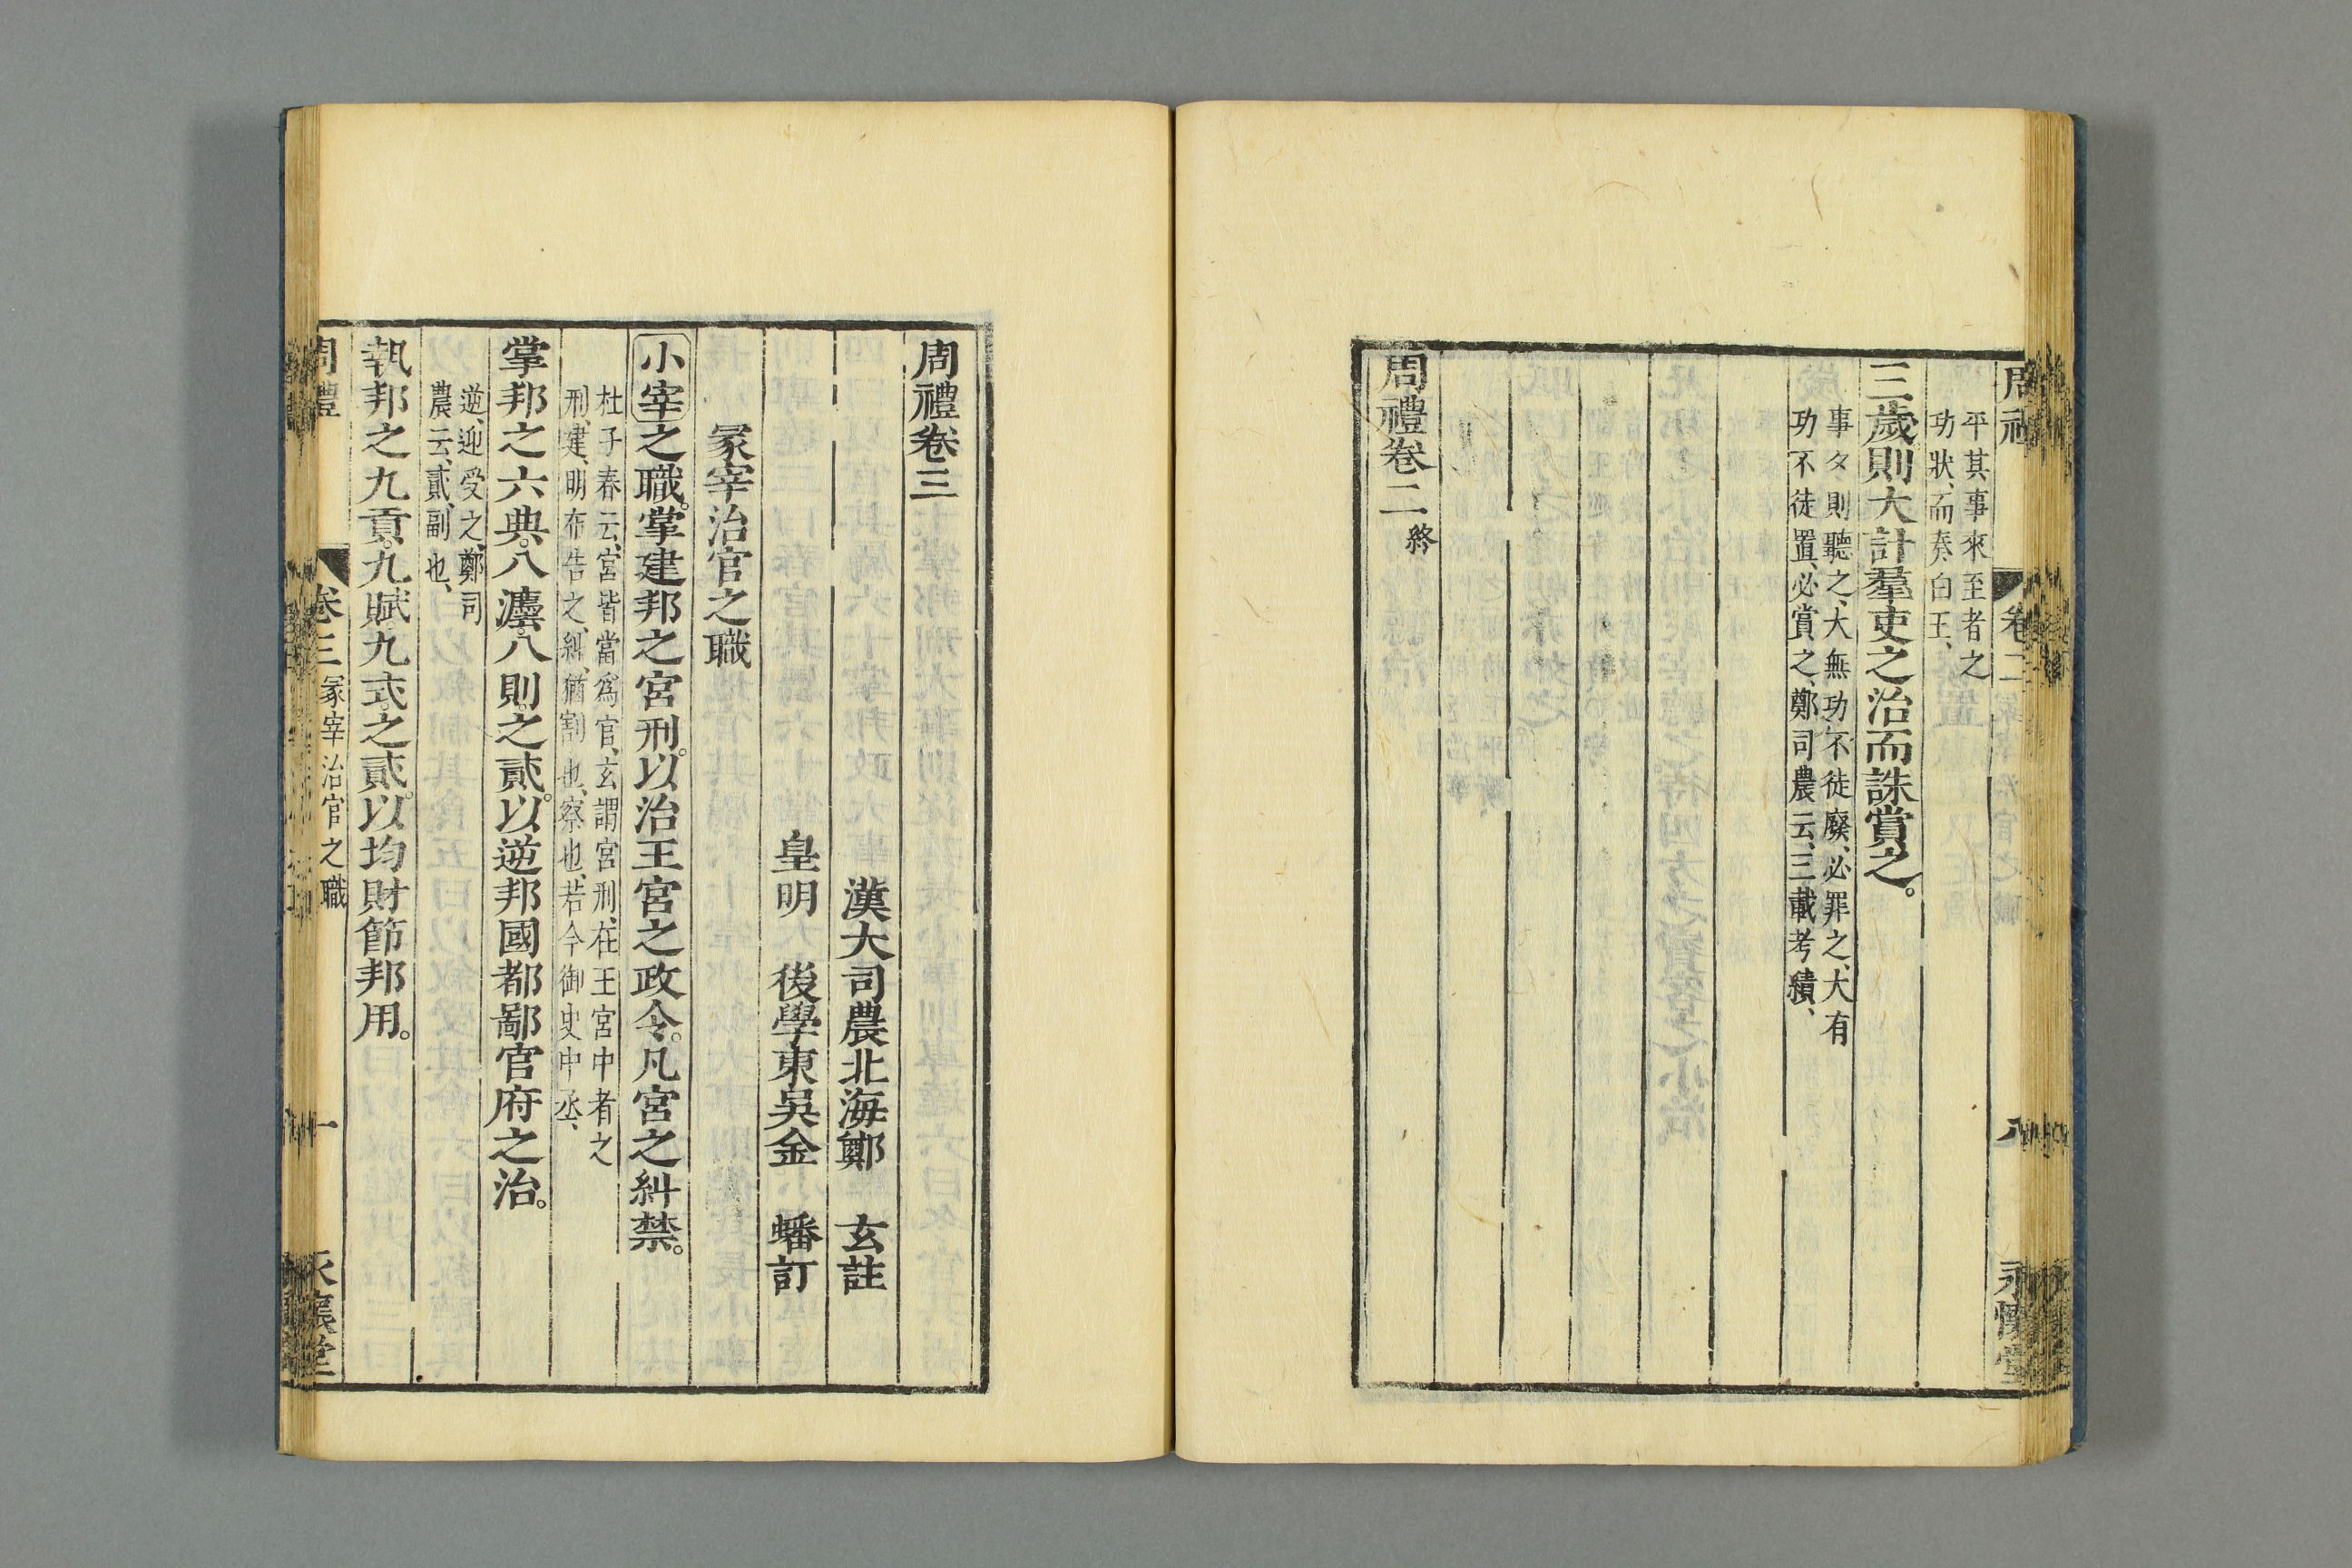 平其事來至者之
功狀、而奏白王、
三歲則大計羣吏之治而誅賞之。
事々則聽之、大無功、不徒廢、必罪之、大有
功不徒置、必賞之、鄭司農云、三載考績、
周禮卷二終
周禮卷三
漢大司農北海鄭玄註
皇明後學東吳金蟠訂
冢宰治官之職
小宰之職。掌建邦之宮刑。以治王宮之政令。凡宮之糾禁。
杜子春云、宮皆當爲官、玄謂宮刑、在王宮中者之
刑、建、明布告之、糾、猶割也、察也、若今御史中丞、
掌邦之六典。八灋。八則。之貳。以逆邦國都鄙官府之治。
逆、迎受之、鄭司
農云、貳、副也、
執邦之九貢。九賦。九式。之貳。以均財節邦用。
周禮 卷三 冢宰治官之職 一 永懷堂